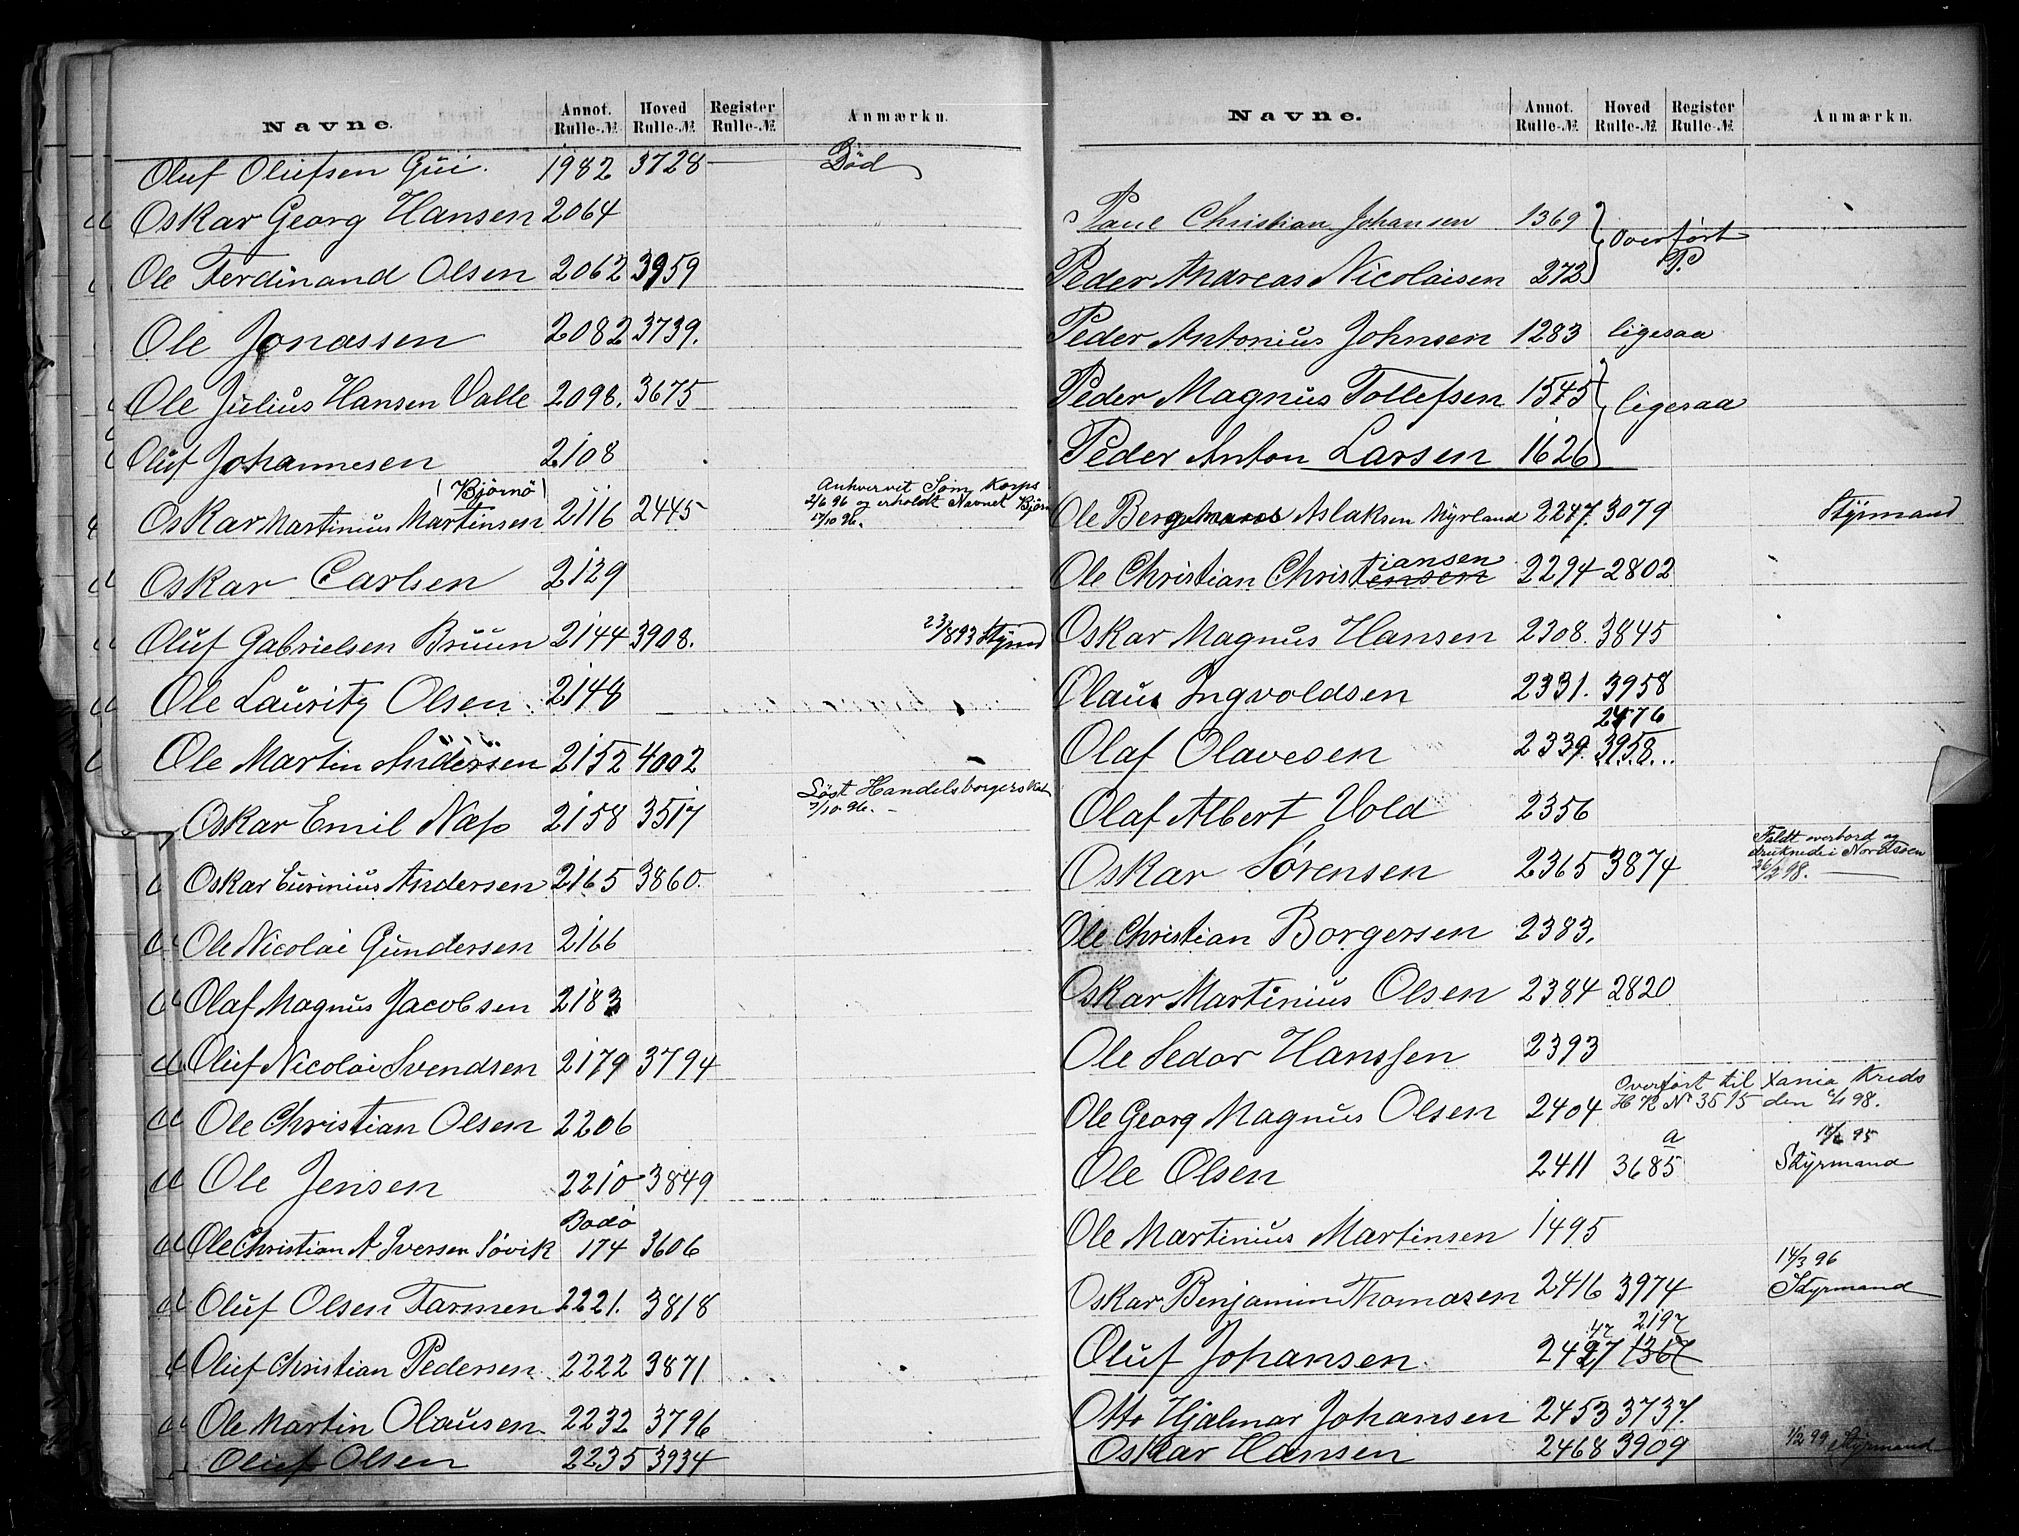 Navne. Annot. Rulle-№ Hoved Rulle-№ Register Rulle-№ Anmærkn.
Oluf Olufsen Gui. 1982 3728 Död
Oskar Georg Hansen 2064
Ole Ferdinand Olsen 2062 3959
Ole Jonassen 2082 3739.
Ole Julius Hansen Valle 2098. 3675
Oluf Johannesen 2108
(Bjørnö) Anhvervet Söm. Korps
Oskar Martinius Martinsen 2116 2445 2/6 96 og erholdt Navnet Bjørn
17/10 96.
Oskar Carlsen 2129
Oluf Gabrielsen Bruun 2144 3908. 23/893 Stýrmd
Ole Lauritz Olsen 2148
Ole Martin Andersen 2152 4002
Löst Handelsborgerskab
Oskar Emil Næss 2158 3517 7/10 96.
Oskar Eurinius Andersen 2165 3860.
Ole Nicolai Gundersen 2166
Olaf Magnus Jacobsen 2183
Oluf Nicolai Svendsen 2179 3794
Ole Christian Olsen 2206
Ole Jensen 2210 3849
Bodö
Ole Christian A Iversen Sövik 174 3606
Oluf Olsen Farmen 2221. 3818
Oluf Christian Pedersen 2222 3871
Ole Martin Olausen 2232 3796
Oluf Olsen 2235 3934
Navne. Annot. Rulle-№ Hoved Rulle-№ Register Rulle-№ Anmærkn.
Paul Christian Johansen 1369 } Overfört
Peder Andreas Nicolaisen 272 P.
Peder Antonius Johnsen 1283 ligesaa
Peder Magnus Tollefsen 1545 } ligesaa
Peder Anton Larsen 1626
Ole Aslaksen Myrland 2247. 3079 Stýrmand
iansen
Ole Christian Christensen 2294 2802
Oskar Magnus Hansen 2308. 3845
Olaus Ingvoldsen 2331. 3958
2476
Olaf Olavesen 2339. 3958...
Olaf Albert Vold 2356
Faldt overbord og
Oskar Sörensen 2365 3874 druknede i Nordsöen
26/2 98.
Ole Christian Borgersen 2383.
Oskar Martinius Olsen 2384 2820
Ole Sedor Hanssen 2393
Overfört til Xania Kreds
Ole Georg Magnus Olsen 2404 H R Nr 3515 den 98.
a 95
Ole Olsen 2411 3685 Stýrmand
Ole Martinius Martinsen 1495
14/3 96
Oskar Benjamin Thomasen 2416 3974 Styrmand
47 2197
Oluf Johansen. 2427 1367
Otto Hjalmar Johansen 2453 3737.
Oskar Hansen 2468 3909 1/2 99 Stýrmand